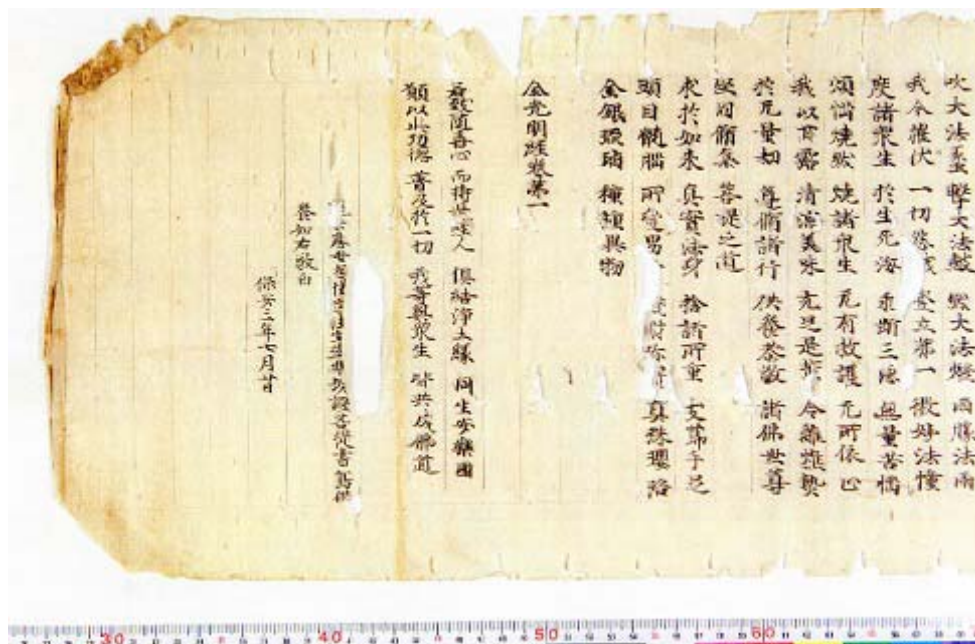 吹大法螺 擊大法鼓 燃大法炬 雨勝法雨
我今摧伏 一切怨 竪立第一 微妙法幢
度諸衆生 於生死海 永断三惡 無量苦惱
煩惱熾然 燒諸衆生 无有救護 无所依止
我以甘露 清涼美味 充足是 令離燋熱
於无量劫 尊脩諸行 供養恭敬 諸佛世尊
堅固脩集 菩提之道
求於如来 真實法身 捨所重 支節手足
頭目髓腦 所愛男 財珎 真珠瓔珞
金銀琉璃 種種異物
金光明經卷第一
随喜心 而 人 俱結淨土縁 同生安樂國
願以此功德 普及於一切 我等與衆生 皆共成佛道
證菩提書寫供
養如右敬白
保安三年七月廿
30 40 50 60